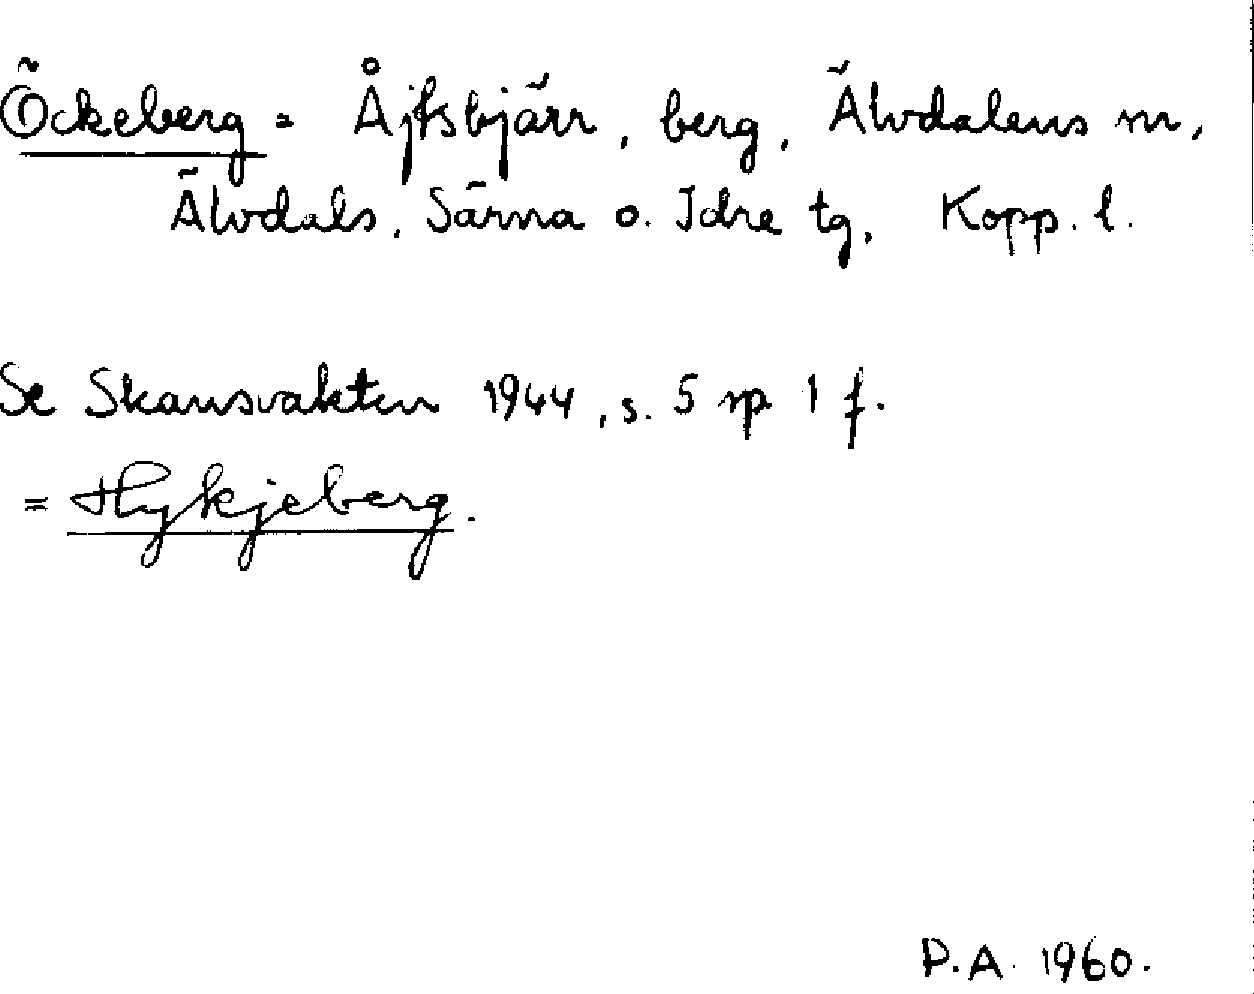 Öckeberg = Åjksbjärr, berg, Älvdalens sn,
Älvdals, Särna o. Idre tg, Kopp. l.
Se Skansvakten 1944, s. 5 sp 1 f.
= Hykjeberg.
P.A. 1960.